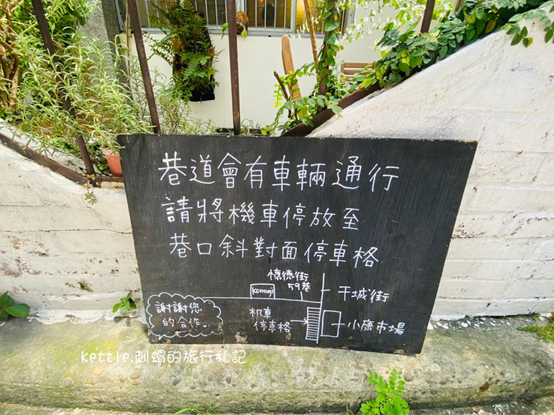 巷道會有車輛通行
請將機車停放至
巷口斜對面停車格
懷德街
59巷
干城街
謝謝您
的合作
机車
停車格
小康市場
kettle.刺蝟的旅行札記